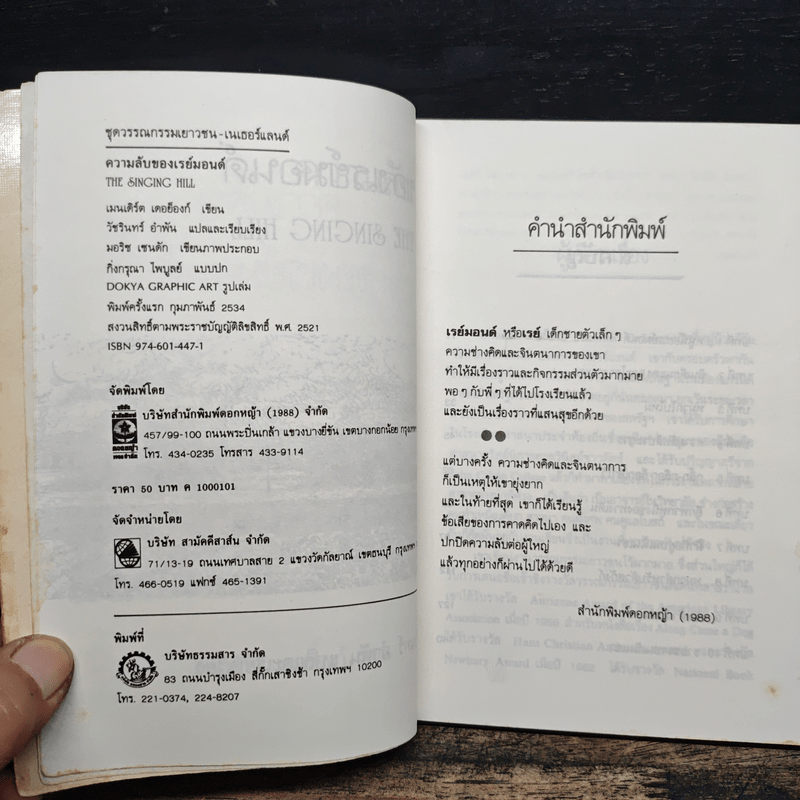 ชุดวรรณกรรมเยาวชน-เนเธอร์แลนด์
ความลับของเรย์มอนด์
THE SINGING HILL
เมนเดิร์ต เดอย็องก์ เขียน
วัชรินทร์ อำพัน แปลและเรียบเรียง
มอริซ เซนดัก เขียนภาพประกอบ
กิ่งกรุณา ไพบูลย์ แบบปก
DOKYA GRAPHIC ART รูปเล่ม
พิมพ์ครั้งแรก กุมภาพันธ์ 2534
สงวนสิทธิ์ตามพระราชบัญญัติลิขสิทธิ์ พ.ศ. 2521
ISBN 974-601-447-1
จัดพิมพ์โดย
บริษัทสำนักพิมพ์ดอกหญ้า (1988) จำกัด
457/99-100 ถนนพระปิ่นเกล้า แขวงบางยี่ขัน เขตบางกอกน้อย กรุงเทพ
โทร. 434-0235 โทรสาร 433-9114
ราคา 50 บาท ค 1000101
จัดจำหน่ายโดย
บริษัท สามัคคีสาส์น จำกัด
71/13-19 ถนนเทศบาลสาย 2 แขวงวัดกัลยาณ์ เขตธนบุรี กรุงเทพ
โทร. 466-0519 แฟกซ์ 465-1391
พิมพ์ที่
บริษัทธรรมสาร จำกัด
83 ถนนบำรุงเมือง สี่กั๊กเสาชิงช้า กรุงเทพฯ 10200
โทร. 221-0374, 224-8207
คำนำสำนักพิมพ์
เรย์มอนด์ หรือเรย์ เด็กชายตัวเล็ก ๆ
ความช่างคิดและจินตนาการของเขา
ทำให้มีเรื่องราวและกิจกรรมส่วนตัวมากมาย
พอ ๆ กับพี่ ๆ ที่ได้ไปโรงเรียนแล้ว
และยังเป็นเรื่องราวที่แสนสุขอีกด้วย
แต่บางครั้ง ความช่างคิดและจินตนาการ
ก็เป็นเหตุให้เขายุ่งยาก
และในท้ายที่สุด เขาก็ได้เรียนรู้
ข้อเสียของการคาดคิดไปเอง และ
ปกปิดความลับต่อผู้ใหญ่
แล้วทุกอย่างก็ผ่านไปได้ด้วยดี
สำนักพิมพ์ดอกหญ้า (1988)